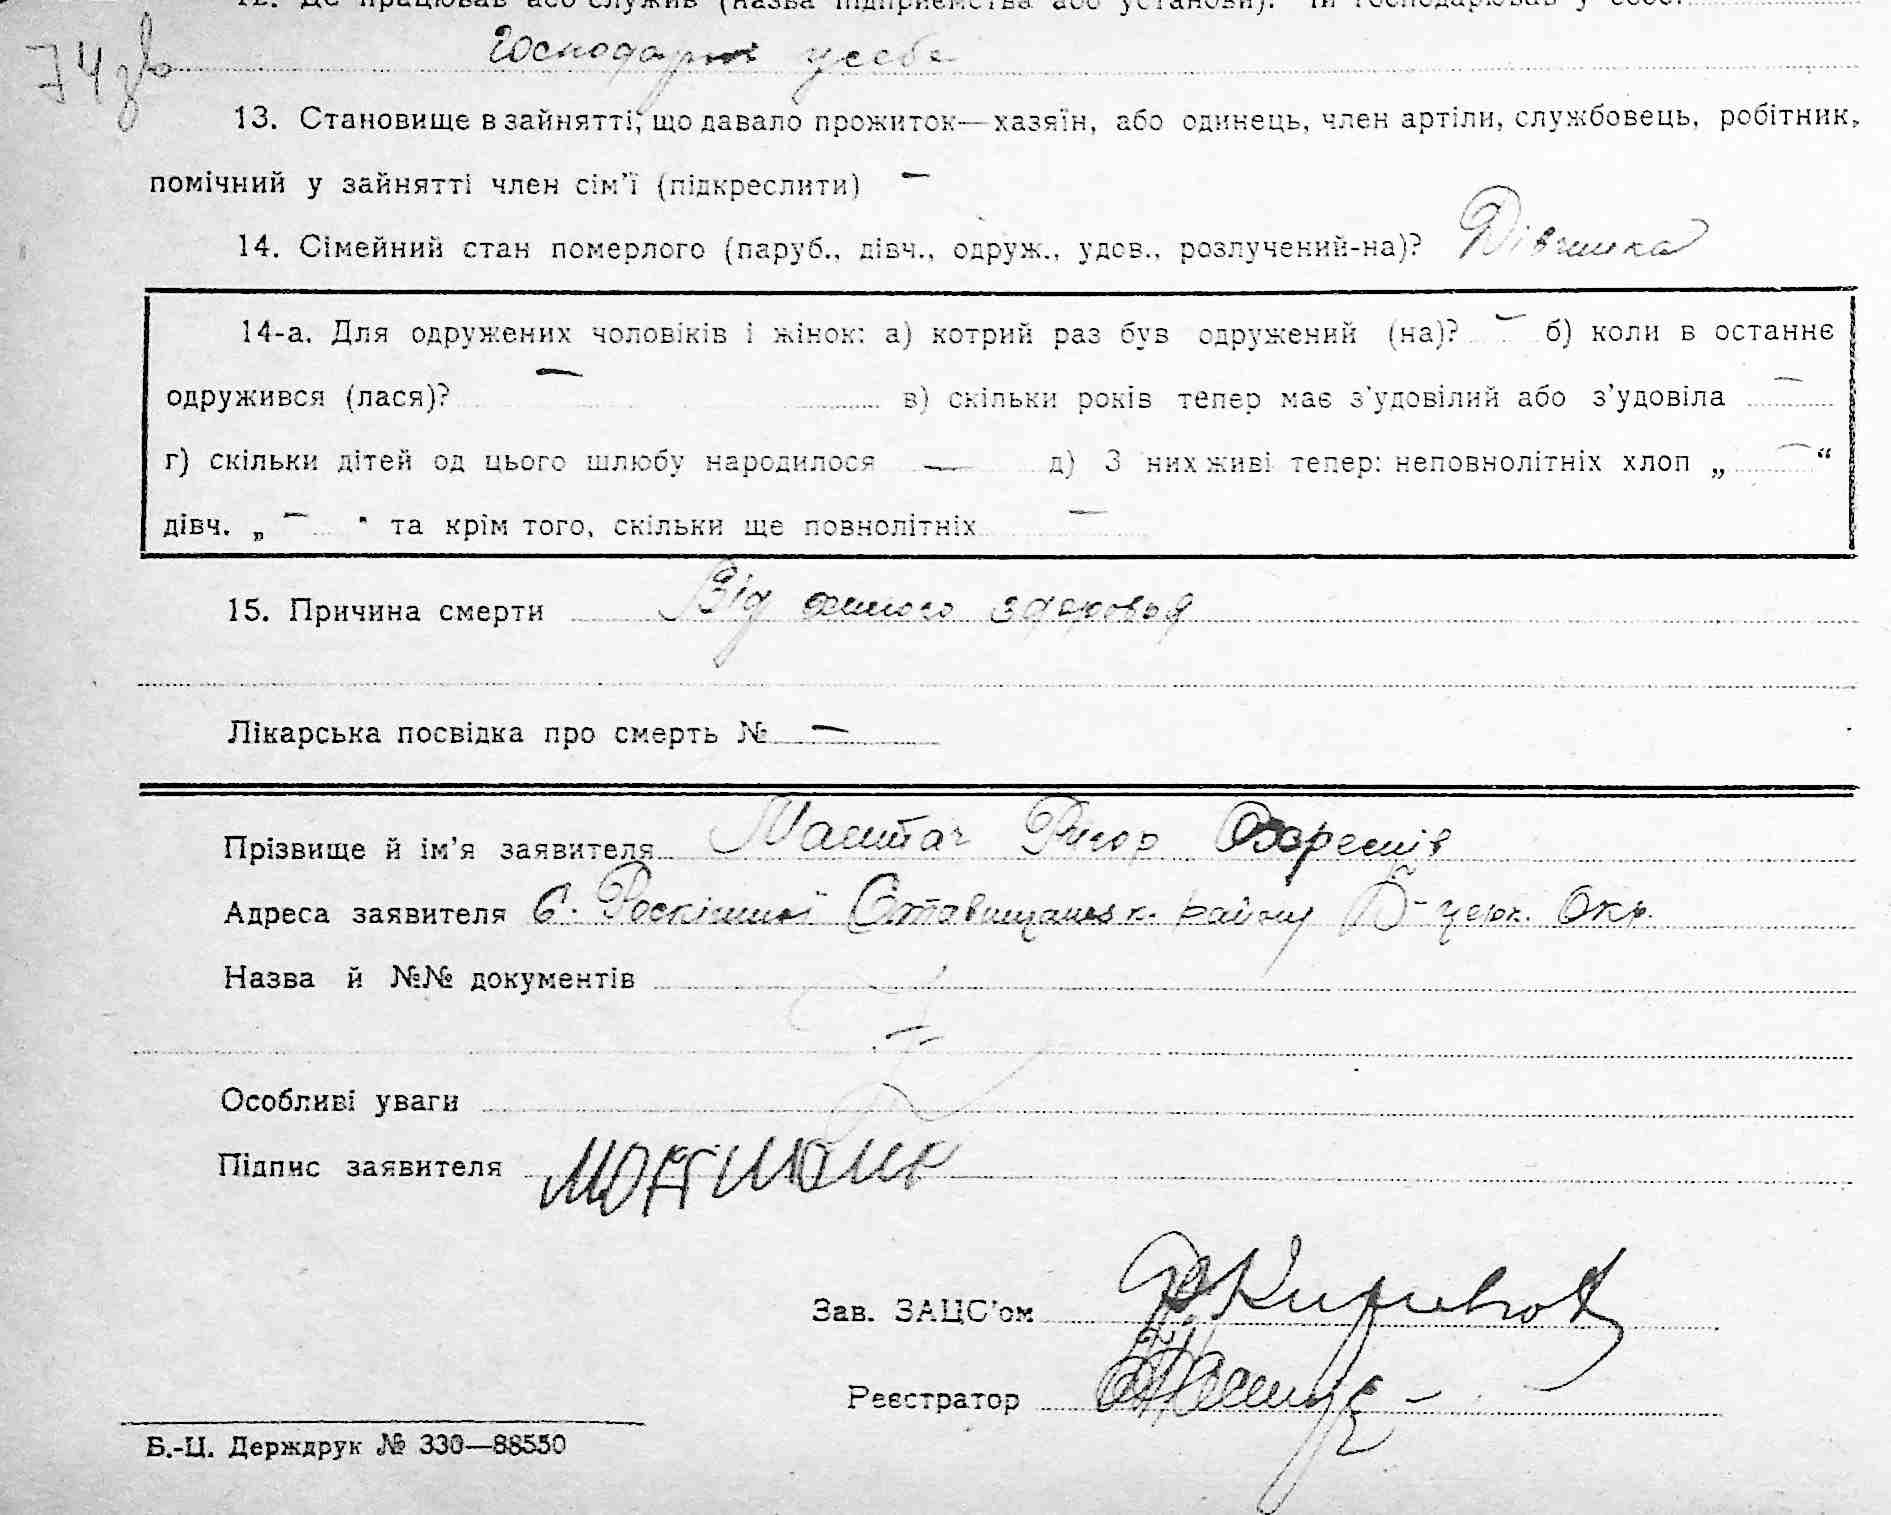 12. Де працював або служив (назва підприємства або установи). Чи господарював у себе.
74 зв Господарюв у себе
13. Становище в зайнятті, що давало прожиток—хазяїн, або одинець, член артіли, службовець, робітник,
помічний у зайнятті член сім'ї (підкреслити) —
14. Сімейний стан померлого (паруб., дівч., одруж., удов., розлучений-на)? Дівчинка
14-а. Для одружених чоловіків і жінок: а) котрий раз був одружений (на)? — б) коли в останнє
одружився (лася)? — в) скільки років тепер має з'удовілий або з'удовіла —
г) скільки дітей од цього шлюбу народилося — д) З них живі тепер: неповнолітніх хлоп „ — “
дівч. „ — " та крім того, скільки ще повнолітніх —
15. Причина смерти Від слабого здоровья
Лікарська посвідка про смерть № —
Прізвище й ім'я заявителя Маштач Ригор
Адреса заявителя С. Роскішної Ставищанськ. району Б-церк. Окр.
Назва й №№ документів
—
Особливі уваги
Підпис заявителя
Зав. ЗАЦС'ом
Реєстратор
Б.-Ц. Держдрук № 330—88550